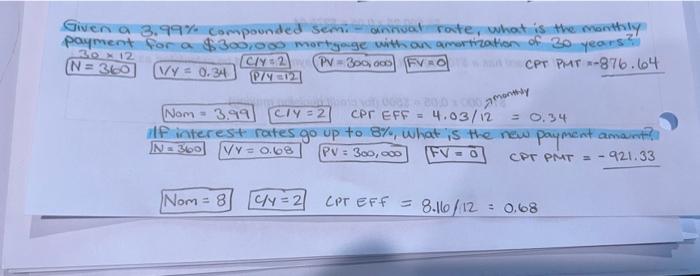 Given a 3.99% compounded semi-annual rate, what is the monthly
payment for a $300,000 mortgage with an amortization of 30 years?
30 x 12
N = 360 I/Y = 0.34 C/Y = 2 P/Y = 12 PV = 300,000 FV = 0 CPT PMT = -876.64
monthly
Nom = 3.99 C/Y = 2 CPT EFF = 4.03/12 = 0.34
If interest rates go up to 8%, what is the new payment amount?
N = 360 I/Y = 0.68 PV = 300,000 FV = 0 CPT PMT = -921.33
Nom = 8 C/Y = 2 CPT EFF = 8.16/12 = 0.68